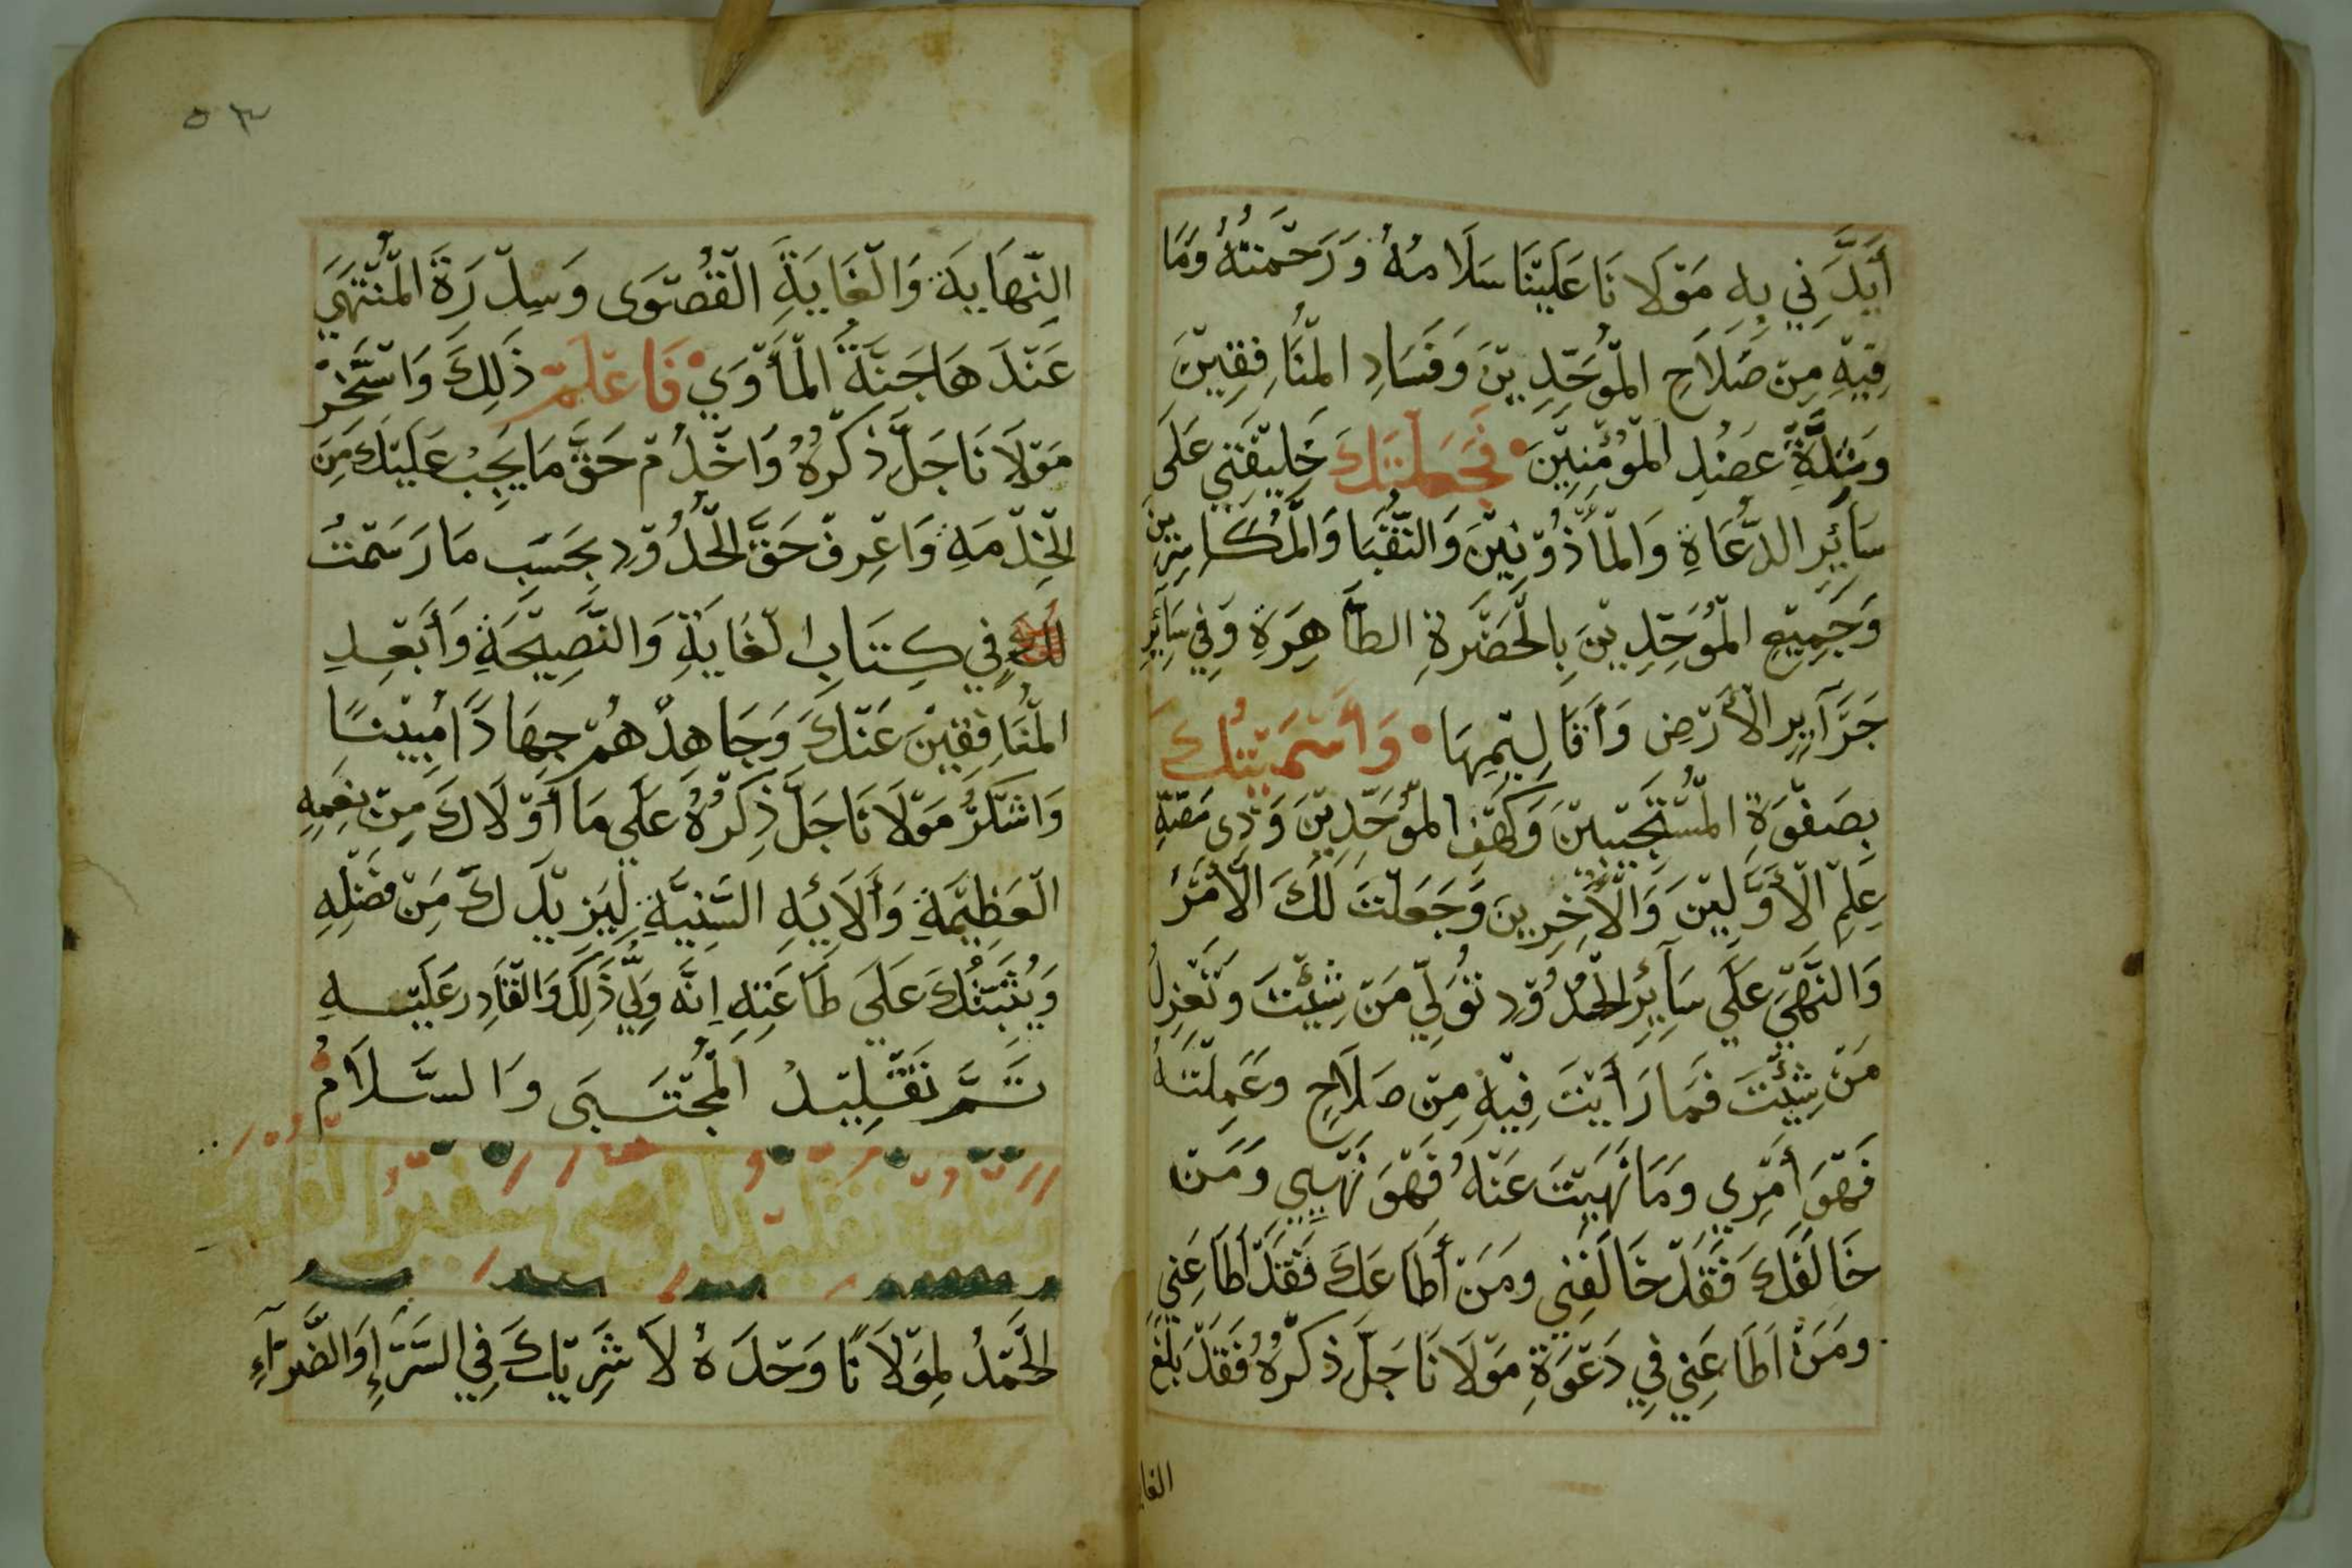 أَيَّدَنِي بِهِ مَوْلَانَا عَلَيْنَا سَلَامُهُ وَرَحْمَتُهُ وَمَا
فِيْهِ مِنْ صَلَاحِ الْمُوَحِّدِيْنَ وَفَسَادِ الْمُنَافِقِيْنَ
عَضُدِ الْمُؤْمِنِيْنَ فَجَعَلْتُكَ خَلِيْفَتِي عَلَى
سَآئِرِ الدُّعَاةِ وَالْمَأْذُوْنِيْنَ وَالنُّقَبَا وَالْمُكَاسِرِيْنَ
وَجَمِيْعِ الْمُوَحِّدِيْنَ بِالْحَضْرَةِ الطَّاهِرَةِ وَفِي سَآئِرِ
جَزَآيِرِ الْأَرْضِ وَأَقَالِيْمِهَا وَأَسْمَيْتُكَ
بِصَفْوَةِ الْمُسْتَجِيْبِيْنَ وَكَهْفِ الْمُوَحِّدِيْنَ وَذِي مَصَّةِ
عِلْمِ الْأَوَّلِيْنَ وَالْآخِرِيْنَ وَجَعَلْتُ لَكَ الْأَمْرَ
وَالنَّهْيَ عَلَى سَآئِرِ الْحُدُوْدِ تُوَلِّي مَنْ شِئْتَ وَتَعْزِلُ
مَنْ شِئْتَ فَمَا رَأَيْتَ فِيْهِ مِنْ صَلَاحِ وَعَمِلْتَهُ
فَهْوَ أَمْرِي وَمَا نَهَيْتَ عَنْهُ فَهْوَ نَهْيِي وَمَنْ
خَالَفَكَ فَقَدْ خَالَفَنِي وَمَنْ أَطَاعَكَ فَقَدْ أَطَاعَنِي
وَمَنْ أَطَاعَنِي فِي دَعْوَةِ مَوْلَانَا جَلَّ ذِكْرُهُ فَقَدْ بَلَغَ
٥٣
النِّهَايَةَ وَالْغَايَةَ الْقُصْوَى وَسِدْرَةَ الْمُنْتَهَي
عَنْدَهَا جَنَّةُ الْمَأْوَي فَاعْلَمْ ذَلِكَ وَاسْتَخِرْ
مَوْلَانَا جَلَّ ذِكْرُهُ وَاخْدُمْ حَقَّ مَا يَجِبُ عَلَيْكَ مِنَ
الْخِدْمَةِ وَاعْرِفْ حَقَّ الْحُدُوْدِ بِحَسَبِ مَا رَسَمْتُ
لَكَ فِي كِتَابِ الْغَايَةِ وَالنَّصِيْحَةِ وَأَبْعِدِ
الْمُنَافِقِيْنَ عَنْكَ وَجَاهِدْهُمْ جِهَادًا مُبِيْنًا
وَاشْكُرْ مَوْلَانَا جَلَّ ذِكْرُهُ عَلَي مَا أَوْلَاكَ مِنْ نِعَمِهِ
الْعَظِيْمَةِ وَأَلَايِهِ السَّنِيَّةِ لِيَزِيْدَكَ مَنْ فَضْلِهِ
وَيُثَبِّتُكَ عَلَى طَاعَتِهِ إِنَّه وَلِيُّ ذَلِكَ وَالْقَادِر عَلَيْهِ
تَمَّ تَقْلِيْدُ الْمُجْتَبَى وَالسَّلَامُ
الْحَمْدُ لِمَوْلَانَا وَحْدَهُ لَا شَرِيْكَ فِي السَّرَّإِ وَالضَّرَّآءِ